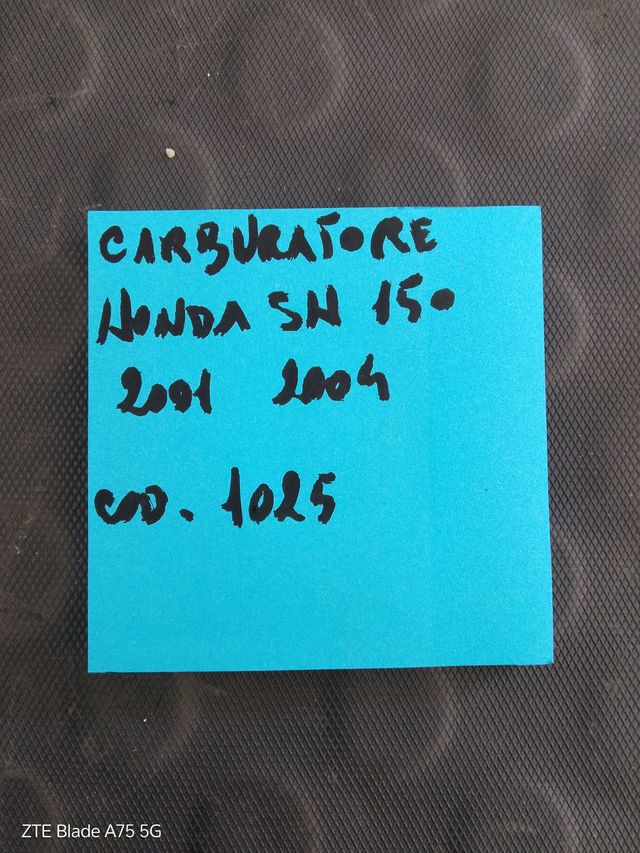 CARBURATORE
HONDA SH 150
2001 2004
COD. 1025
ZTE Blade A75 5G